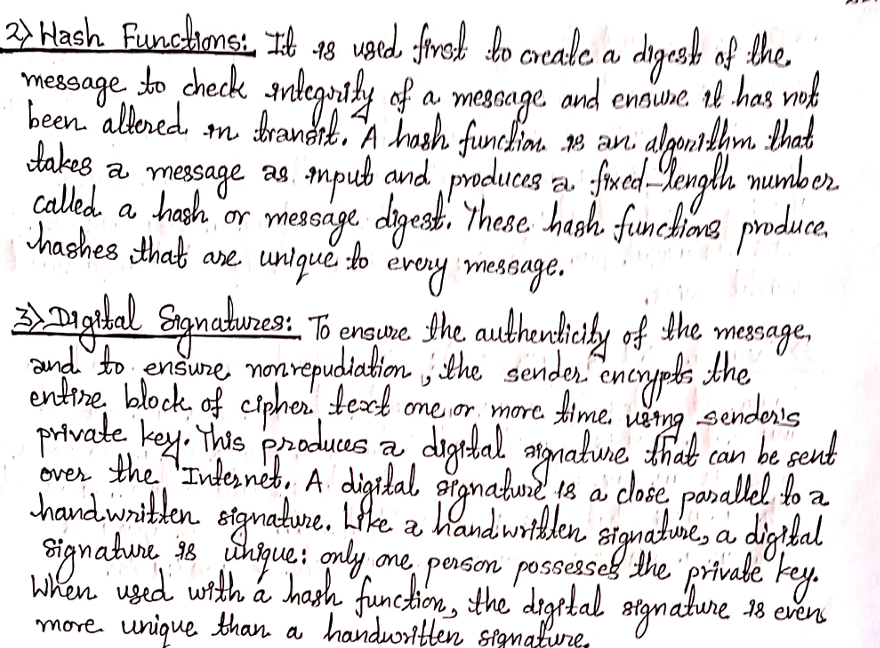 2) Hash Functions: It is used first to create a digest of the
message to check integrity of a message and ensure it has not
been altered in transit. A hash function is an algorithm that
takes a message as input and produces a fixed-length number
called a hash or message digest. These hash functions produce
hashes that are unique to every message.
3) Digital Signatures: To ensure the authenticity of the message,
and to ensure nonrepudiation, the sender encrypts the
entire block of cipher text one or more time using sender's
private key. This produces a digital signature that can be sent
over the Internet. A digital signature is a close parallel to a
handwritten signature. Like a handwritten signature, a digital
signature is unique: only one person possesses the private key.
When used with a hash function, the digital signature is even
more unique than a handwritten signature.